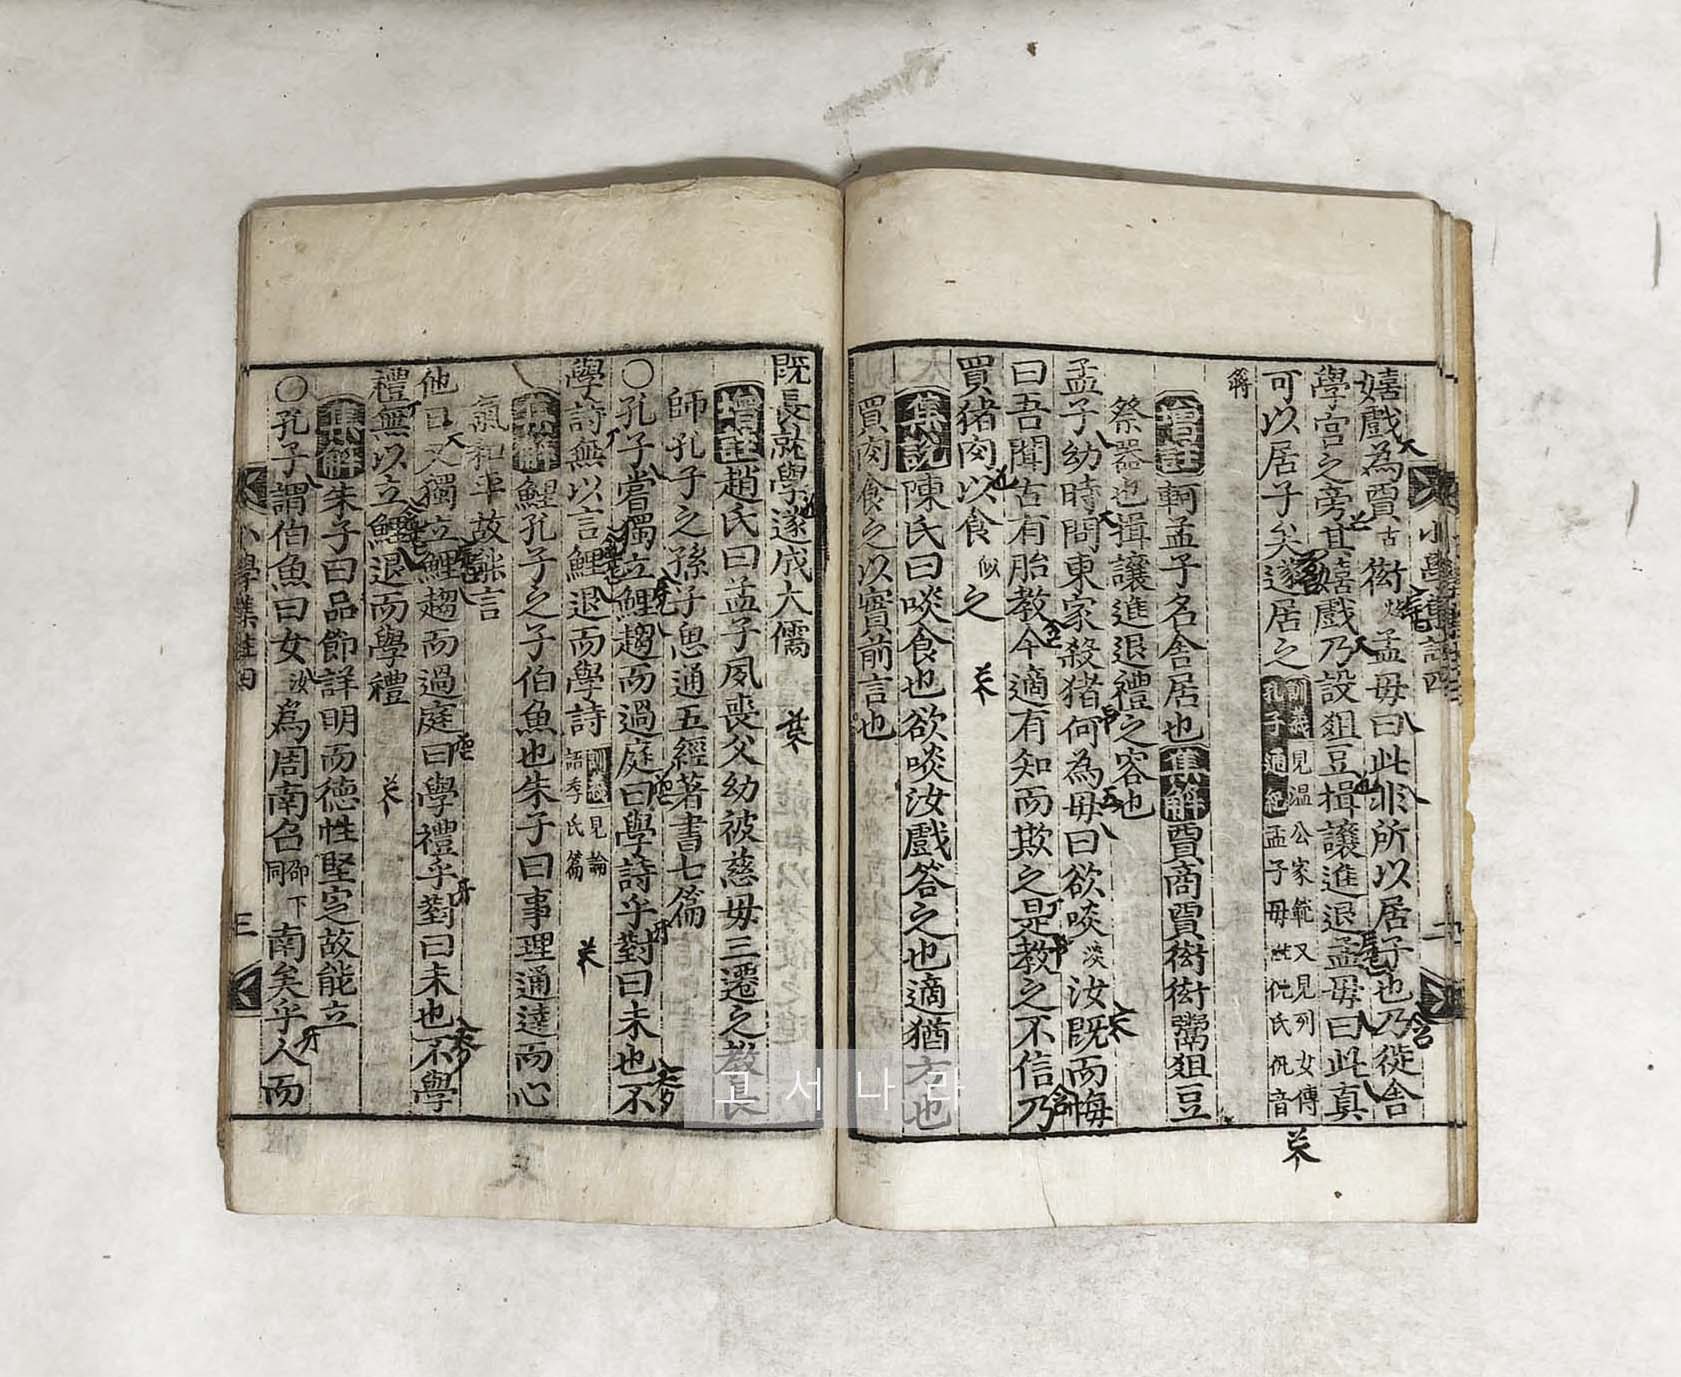 嬉戲為賈古衒孟母曰此非所以居子也乃徙舍
學宮之旁其嬉戲乃設俎豆揖讓進退孟母曰此真
可以居子矣遂居之
訓義見溫公家範又見列女傳
孔子通紀孟子母
增註軻孟子名舍居也集解賈商賈衒衒鬻俎豆
祭器也揖讓進退禮之容也
孟子幼時問東家殺猪何為母曰欲啖淡汝既而悔
曰吾聞古有胎教今適有知而欺之是教之不信乃
買猪肉以食似之
集說陳氏曰啖食也欲啖汝戲答之也適猶方也
買肉食之以實前言也
小學集註四
既長就學遂成大儒
增註趙氏曰孟子夙喪父幼被慈母三遷之教長
師孔子之孫子思通五經著書七篇
○孔子嘗獨立鯉趨而過庭曰學詩乎對曰未也不
學詩無以言鯉退而學詩
訓義見論
語季氏篇
集解鯉孔子之子伯魚也朱子曰事理通達而心
氣和平故能言
他日又獨立鯉趨而過庭曰學禮乎對曰未也不學
禮無以立鯉退而學禮
集解朱子曰品節詳明而德性堅定故能立
○孔子謂伯魚曰女汝為周南召邵下同南矣乎人而
小學集註四
三
고서나라